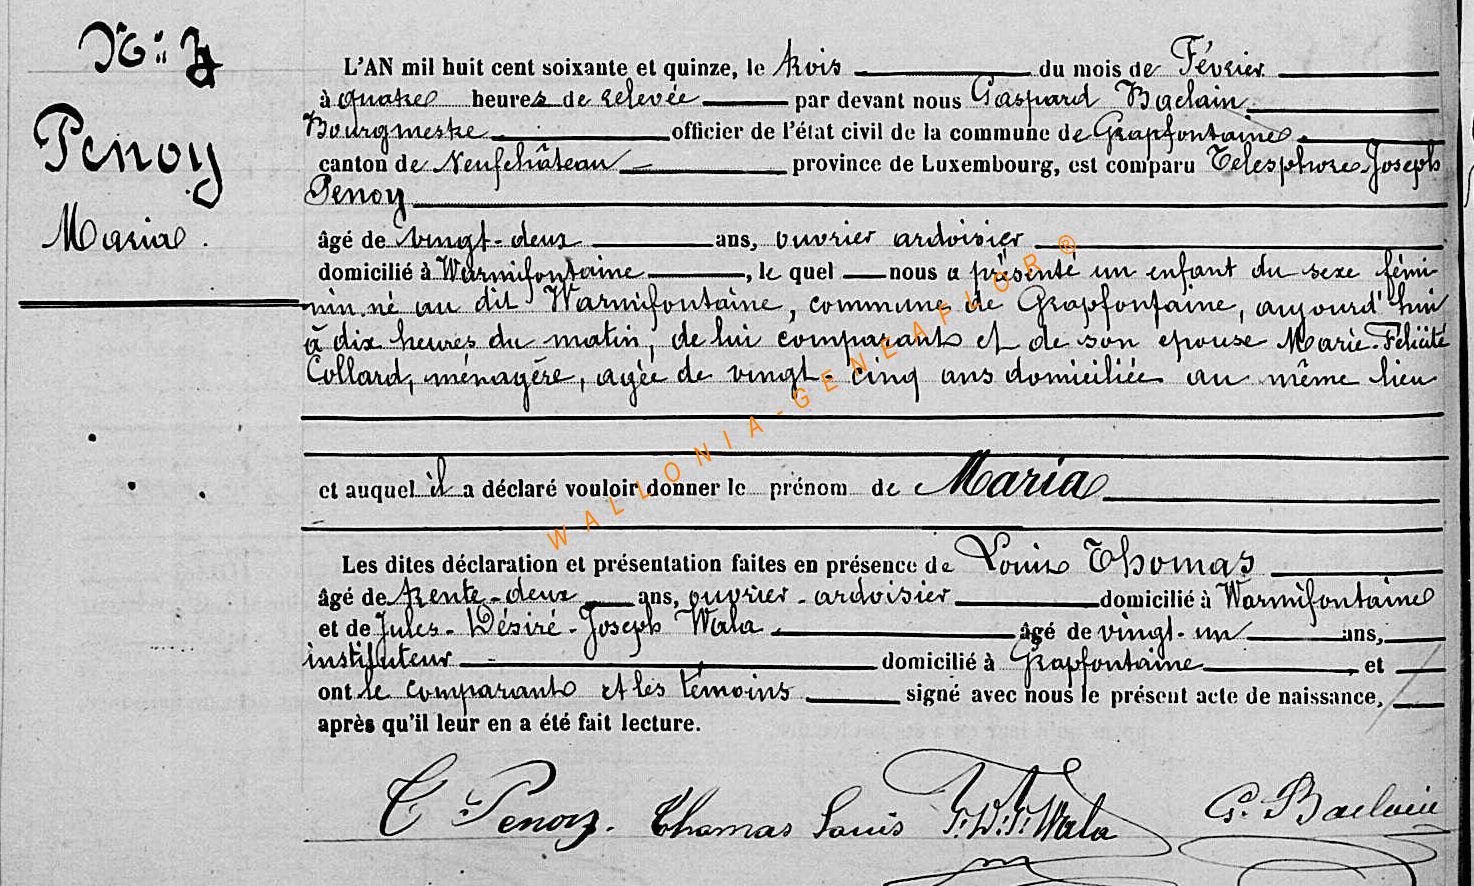 N°: 7
Penoy
Maria.
L'AN mil huit cent soixante et quinze, le trois du mois de Février
à quatre heures de relevée par devant nous Gaspard Baclain
Bourgmestre officier de l'état civil de la commune de Grapfontaine
canton de Neufchâteau province de Luxembourg, est comparu Telesphore-Joseph
Penoy
âgé de vingt-deux ans, ouvrier ardoisier
domicilié à Warmifontaine, le quel nous a présenté un enfant du sexe fémi-
nin, né au dit Warmifontaine, commune de Grapfontaine, aujourd'hui
à dix heures du matin, de lui comparant et de son epouse Marie-Felicité
Collard, ménagère, agée de vingt-cinq ans domiciliée au même lieu
et auquel il a déclaré vouloir donner le prénom de Maria
Les dites déclaration et présentation faites en présence de Louis Thomas
âgé de trente-deux ans, ouvrier-ardoisier domicilié à Warmifontaine
et de Jules-Désiré-Joseph Wala âgé de vingt-un ans,
instituteur domicilié à Grapfontaine, et
ont le comparant et les témoins signé avec nous le présent acte de naissance,
après qu'il leur en a été fait lecture.
T Penoy. Thomas Louis J.D.J. Wala G. Baclain
WALLONIA-GENEAFLOR®